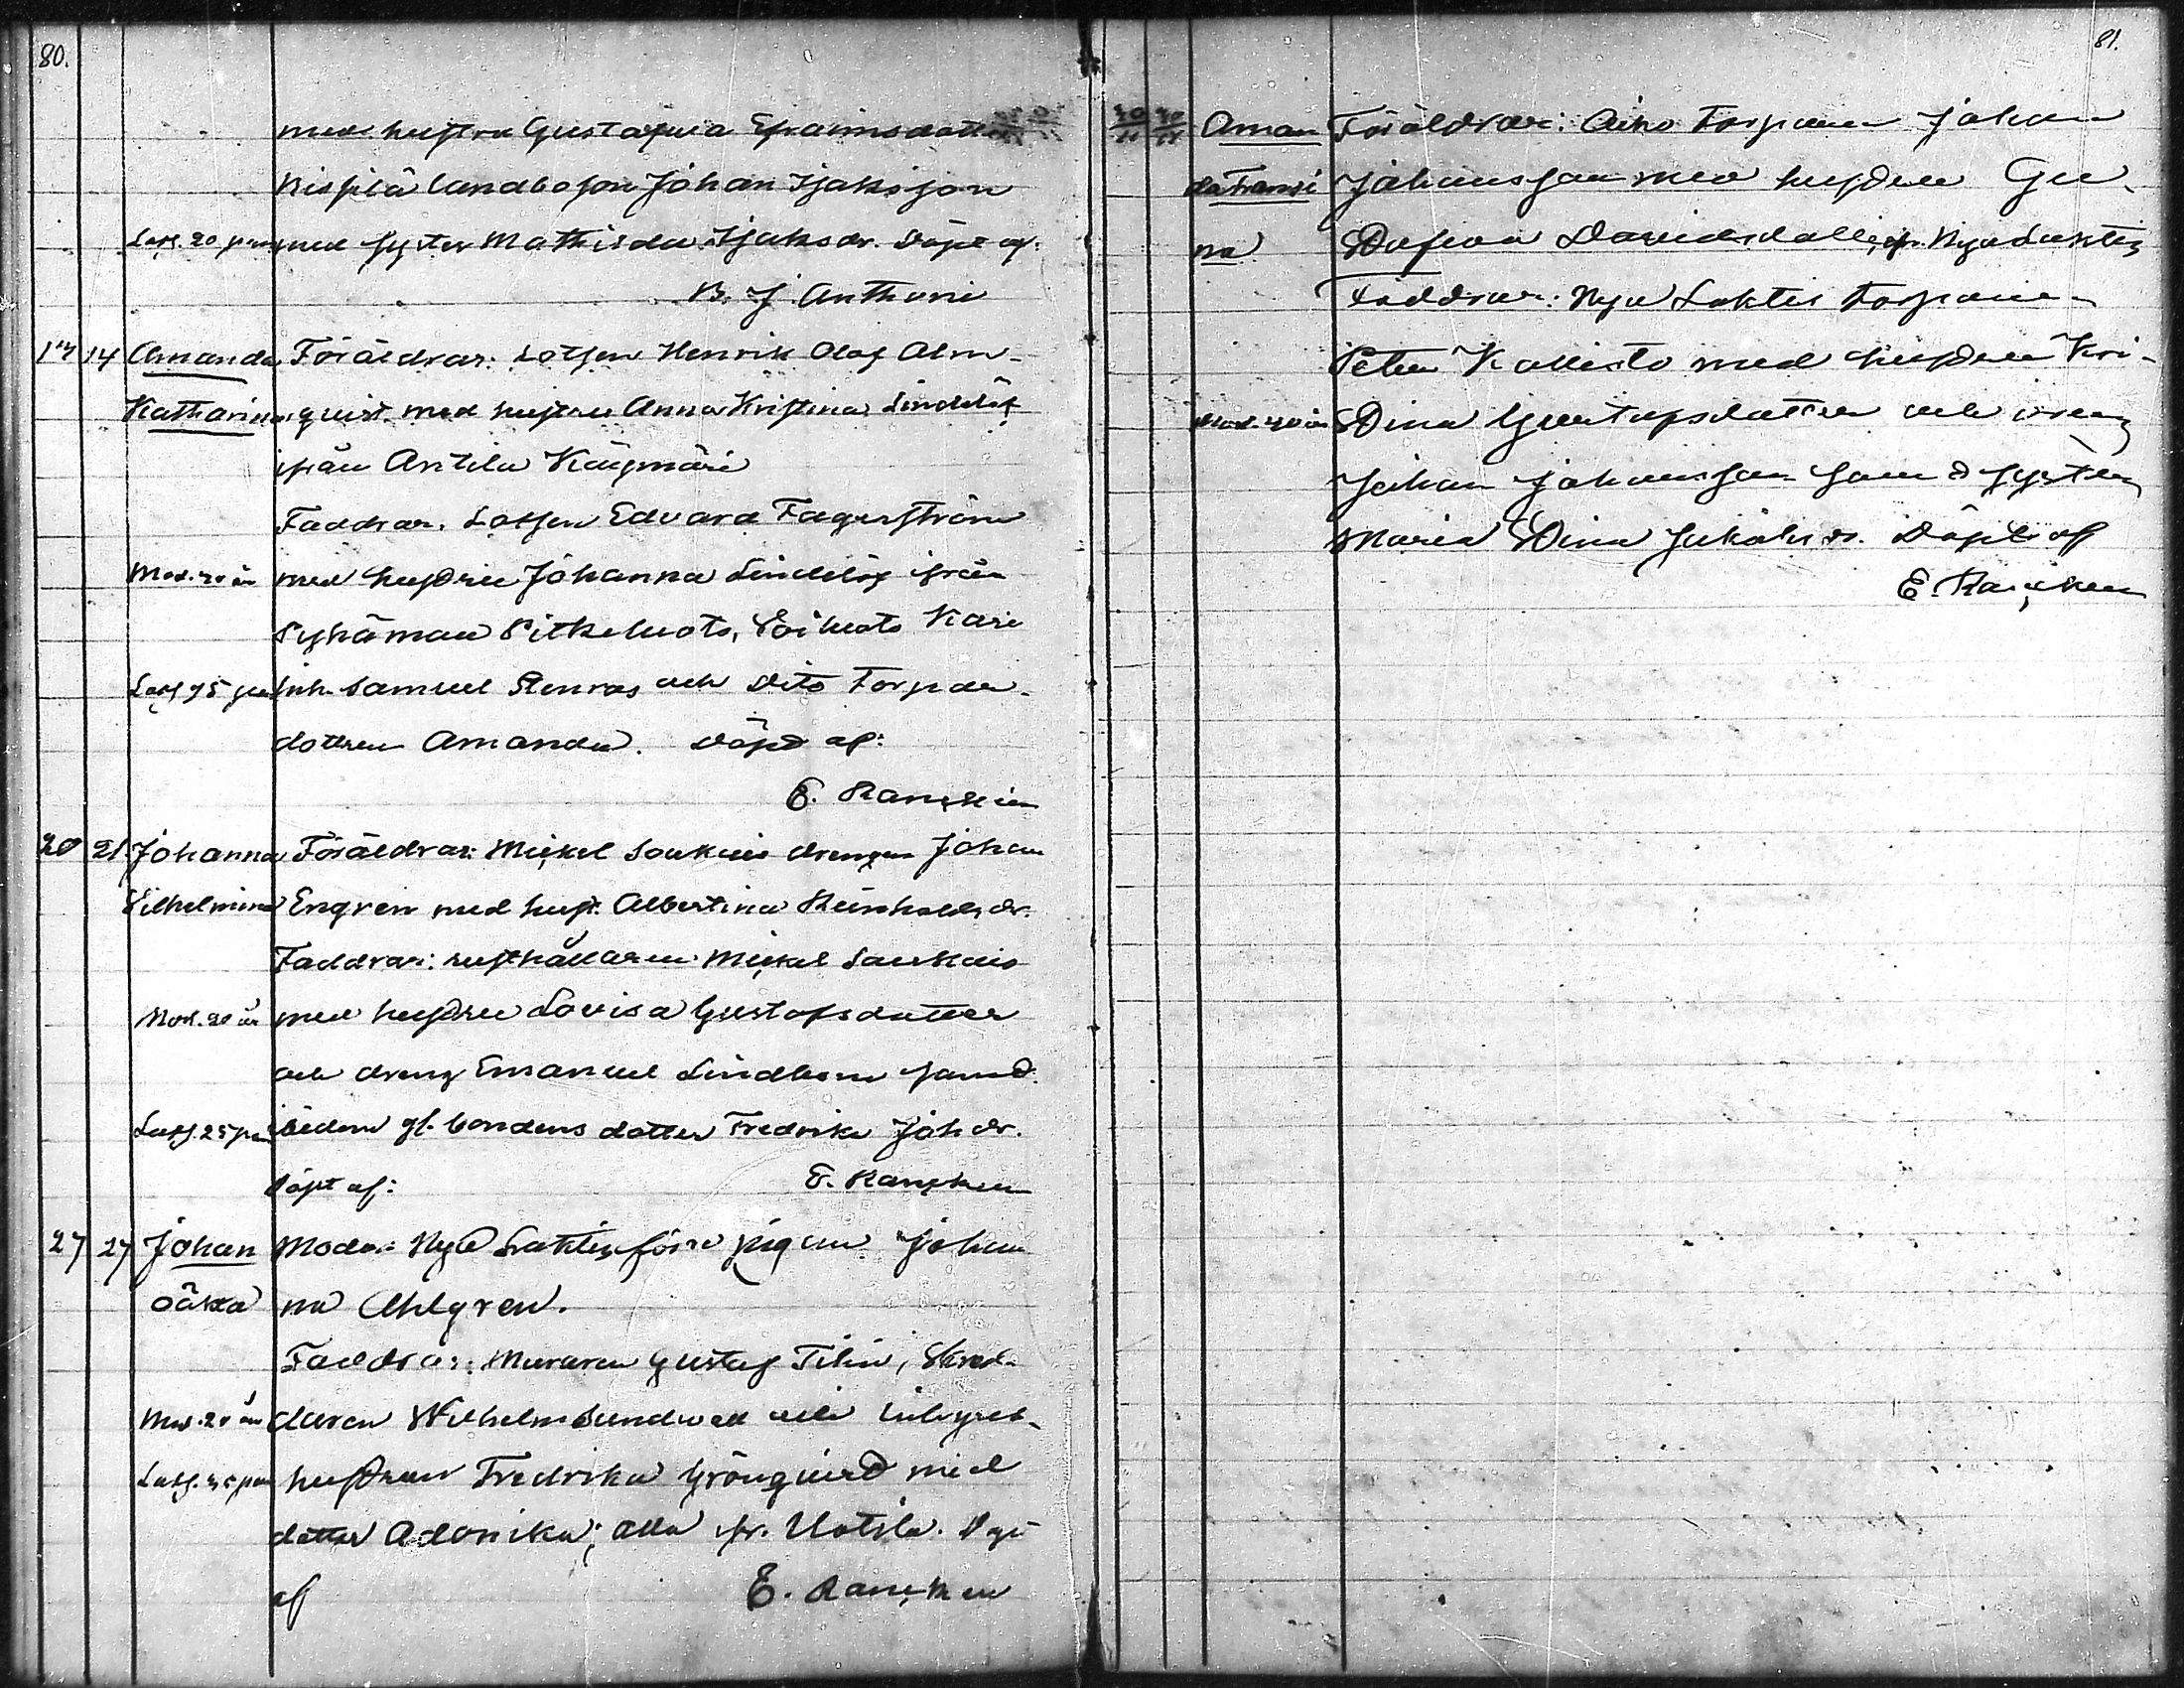 80.
med hustru Gustafwa Efraimsdotter
Bispilä landboson Johan Isaksson
Lösg. 20 pen med syster Mathilda Isaksdr. Döpt af:
B. J. Anthoni
14 14 Amanda Föräldrar: Lotsen Henrik Olof Alm-
Katharina quist med hustru Anna Kristina Lindelöf
ifrån Antila
Faddrar. Lotsen Edvard Fagerström
Mod. år med hustru Johanna Lindelöf ifrån
Pyhämaa
Lösg 75 pen Inh. Samuel Stenros och dito Torpar-
dottren Amanda. Döpt af:
E. Rancken
20 21 Johanna Föräldrar: Mickel drengen Johan
Vilhelmina Engren med hust. Albertina Reinholdsdr.
Faddrar: rusthållaren Mickel
Mod. 20 år med hustru Lovisa Gustafsdotter
och dreng Emanuel Lindbom samt
Lösg. 25 pen gl. bondens dotter Fredrika Johdr.
Döpt af: E. Rancken
27 27 Johan Moder: Nya Laktis pigan Johan
oäkta na Ahlgren.
Faddrar: Muraren Gustaf Tilin, Skred-
Mod. år daren Wilhelm Sundwall och inhyses-
Lösg. pen hustrun Fredrika Grönqvist med
dotter Adonika; alla fr. Uotila. Döpt
af E. Rancken
81.
Aman Föräldrar: Aiho Torparen Johan
da Fransi Johansson med hustru Gu-
na stafwa Davidsdotter, fr. Nya Laktis
Faddrar: Nya Laktis Torparen
Peter Kallisto med hustru Kri-
Mod. 40 år stina Gustafsdotter och dreng
Johan Johansson samt syster
Maria Stina Döpt af
E. Rancken